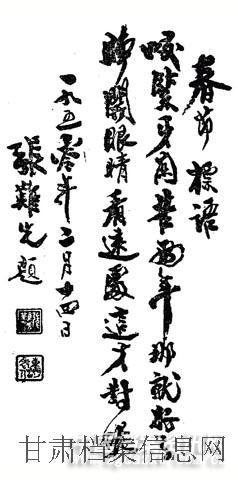 春節標語
咬緊牙關苦幾年那就好了
睜開眼睛看遠處這才對
一九五零年二月十四日
張難先題
甘肃档案信息网